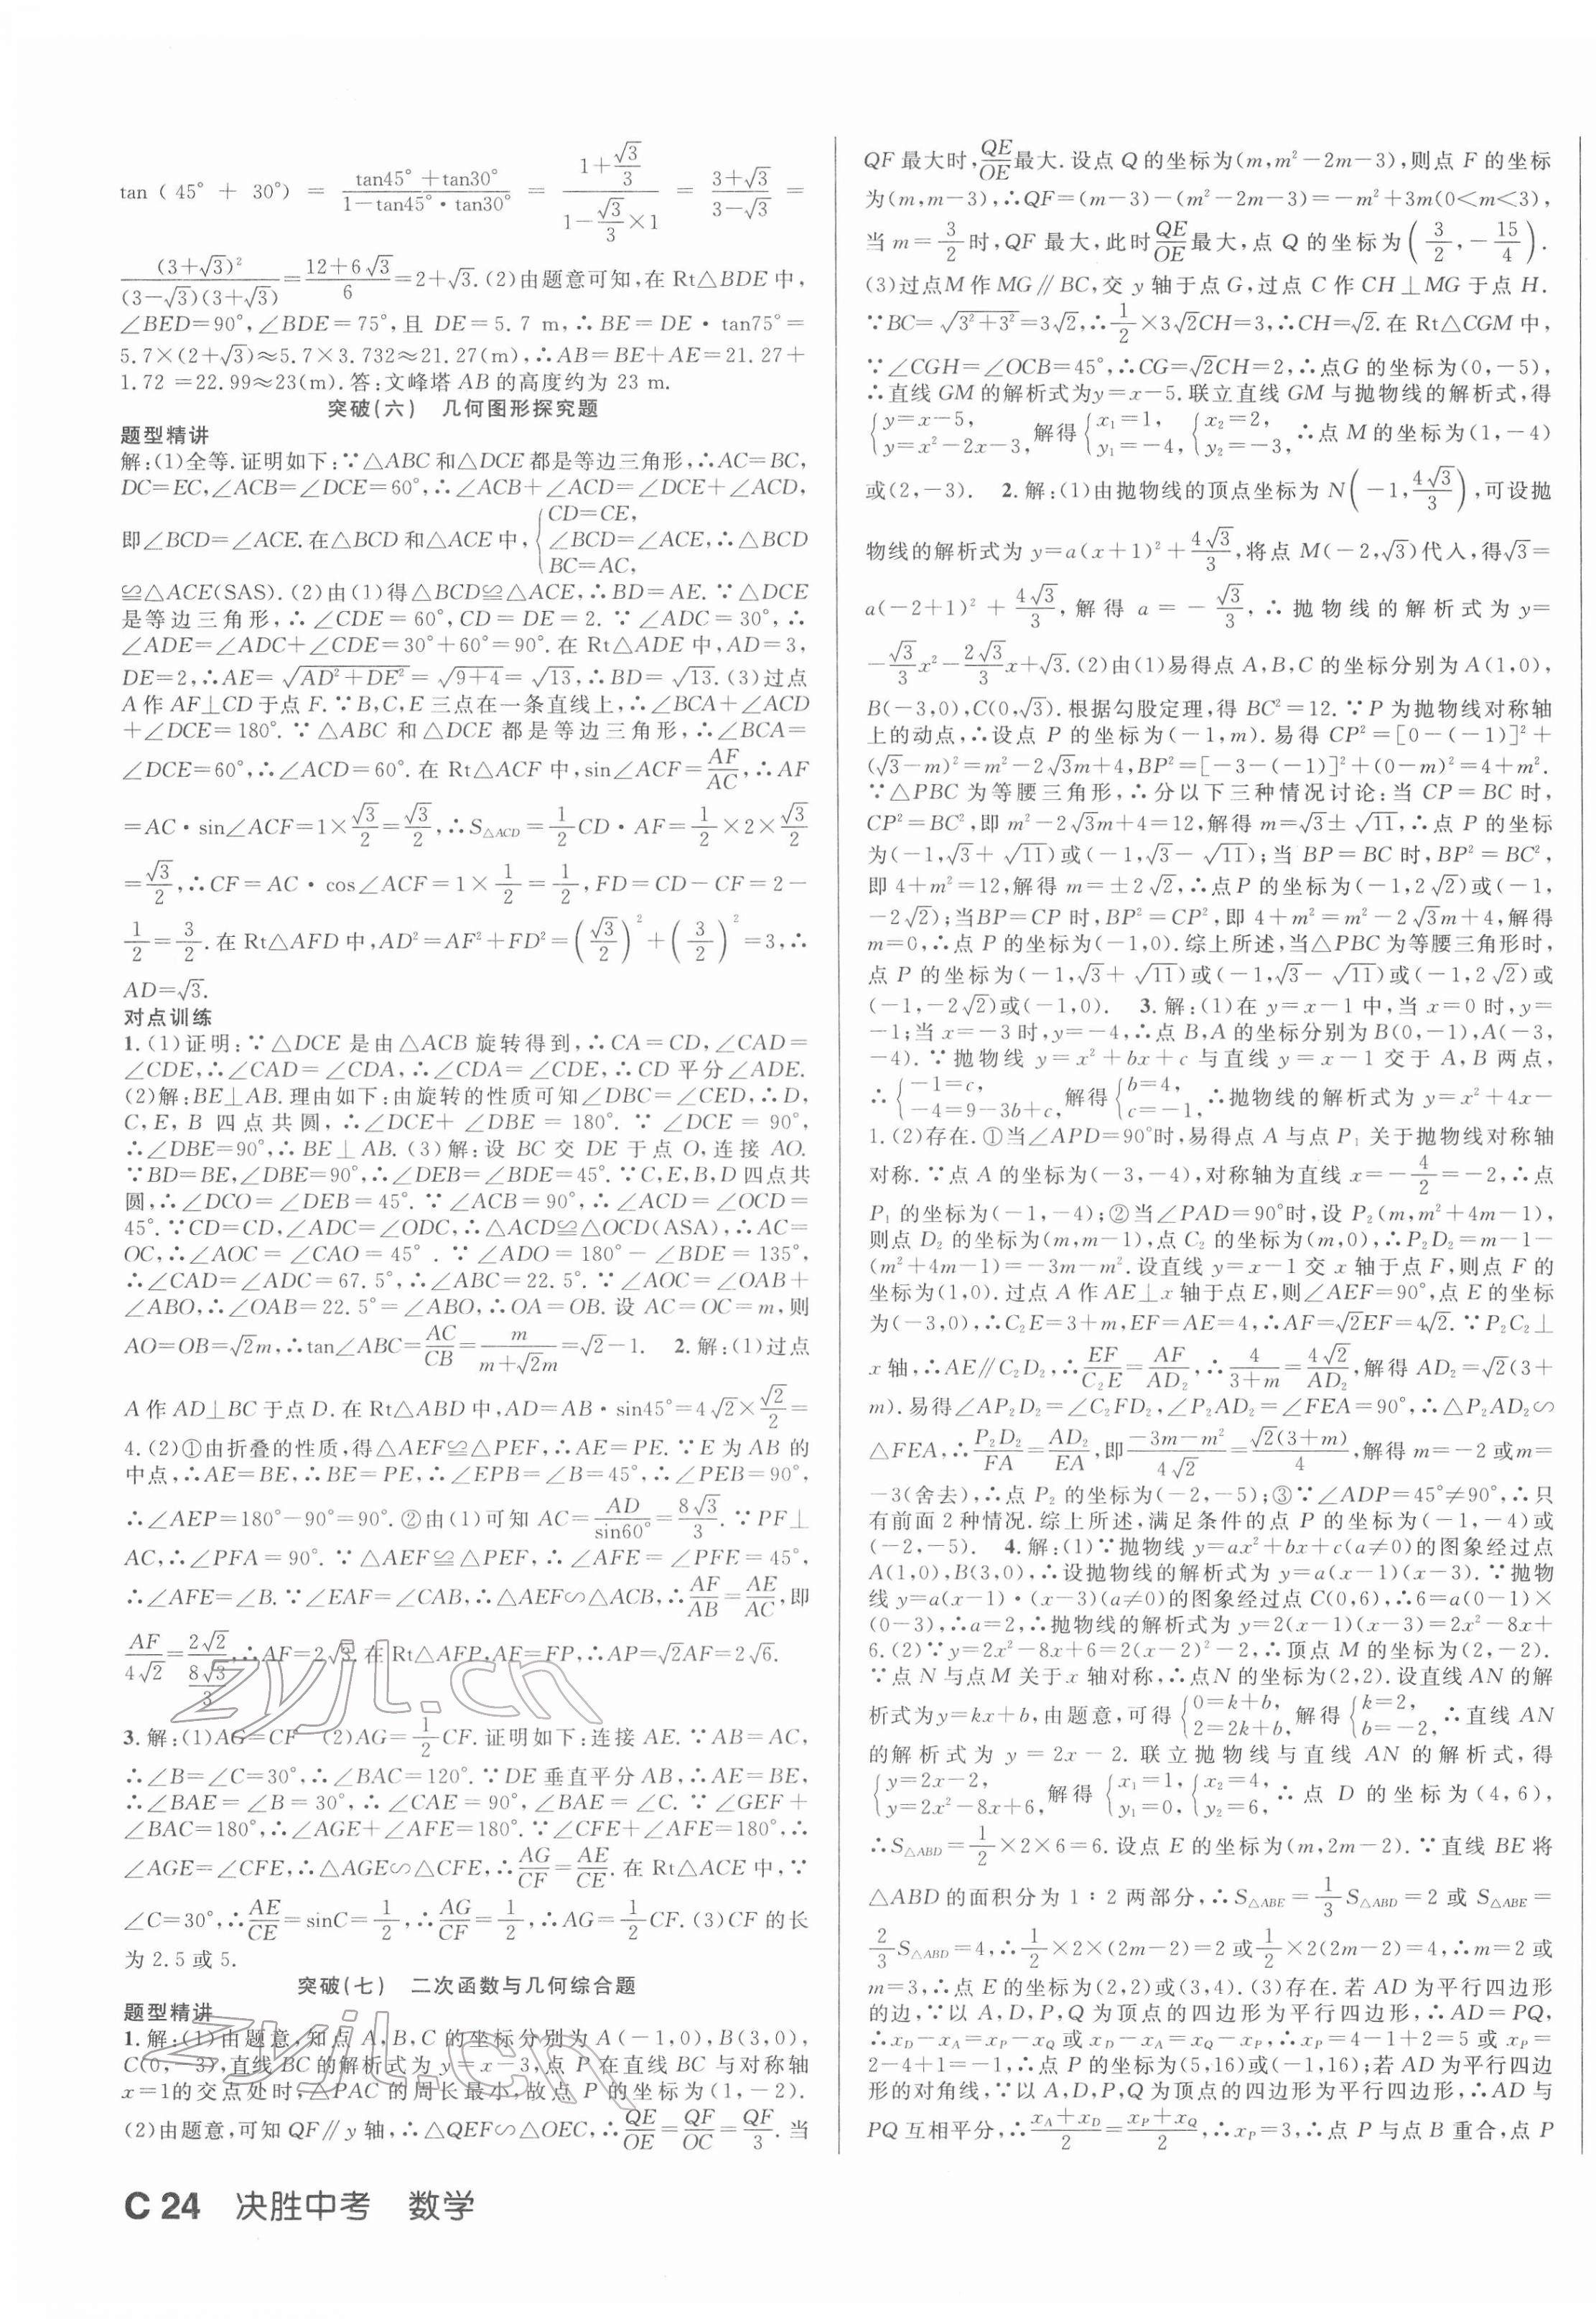 tan(45°+30°)=\frac{tan45°+tan30°}{1-tan45°·tan30°}=\frac{1+\frac{√3}{3}}{1-\frac{√3}{3}×1}=\frac{3+√3}{3-√3}=
\frac{(3+√3)²}{(3-√3)(3+√3)}=\frac{12+6√3}{6}=2+√3.(2)由题意可知,在Rt△BDE中,
∠BED=90°,∠BDE=75°,且DE=5.7 m,∴BE=DE·tan75°=
5.7×(2+√3)≈5.7×3.732≈21.27(m),∴AB=BE+AE=21.27+
1.72=22.99≈23(m).答:文峰塔AB的高度约为23 m.
突破(六) 几何图形探究题
题型精讲
解:(1)全等.证明如下:∵△ABC和△DCE都是等边三角形,∴AC=BC,
DC=EC,∠ACB=∠DCE=60°,∴∠ACB+∠ACD=∠DCE+∠ACD,
即∠BCD=∠ACE.在△BCD和△ACE中,{CD=CE, ∠BCD=∠ACE, BC=AC, ∴△BCD
≌△ACE(SAS).(2)由(1)得△BCD≌△ACE,∴BD=AE.∵△DCE
是等边三角形,∴∠CDE=60°,CD=DE=2.∵∠ADC=30°,∴
∠ADE=∠ADC+∠CDE=30°+60°=90°.在Rt△ADE中,AD=3,
DE=2,∴AE=√(AD²+DE²)=√(9+4)=√13,∴BD=√13.(3)过点
A作AF⊥CD于点F.∵B,C,E三点在一条直线上,∴∠BCA+∠ACD
+∠DCE=180°.∵△ABC和△DCE都是等边三角形,∴∠BCA=
∠DCE=60°,∴∠ACD=60°.在Rt△ACF中,sin∠ACF=\frac{AF}{AC},∴AF
=AC·sin∠ACF=1×\frac{√3}{2}=\frac{√3}{2},∴S△ACD=\frac{1}{2}CD·AF=\frac{1}{2}×2×\frac{√3}{2}
=\frac{√3}{2},∴CF=AC·cos∠ACF=1×\frac{1}{2}=\frac{1}{2},FD=CD-CF=2-
\frac{1}{2}=\frac{3}{2}.在Rt△AFD中,AD²=AF²+FD²=(\frac{√3}{2})²+(\frac{3}{2})²=3,∴
AD=√3.
对点训练
1.(1)证明:∵△DCE是由△ACB旋转得到,∴CA=CD,∠CAD=
∠CDE,∴∠CAD=∠CDA,∴∠CDA=∠CDE,∴CD平分∠ADE.
(2)解:BE⊥AB.理由如下:由旋转的性质可知∠DBC=∠CED,∴D,
C,E,B四点共圆,∴∠DCE+∠DBE=180°.∵∠DCE=90°,
∴∠DBE=90°,∴BE⊥AB.(3)解:设BC交DE于点O,连接AO.
∵BD=BE,∠DBE=90°,∴∠DEB=∠BDE=45°.∵C,E,B,D四点共
圆,∴∠DCO=∠DEB=45°.∵∠ACB=90°,∴∠ACD=∠OCD=
45°.∵CD=CD,∠ADC=∠ODC,∴△ACD≌△OCD(ASA),∴AC=
OC,∴∠AOC=∠CAO=45°.∵∠ADO=180°-∠BDE=135°,
∴∠CAD=∠ADC=67.5°,∴∠ABC=22.5°.∵∠AOC=∠OAB+
∠ABO,∴∠OAB=22.5°=∠ABO,∴OA=OB.设AC=OC=m,则
AO=OB=√2m,∴tan∠ABC=\frac{AC}{CB}=\frac{m}{m+√2m}=√2-1. 2.解:(1)过点
A作AD⊥BC于点D.在Rt△ABD中,AD=AB·sin45°=4√2×\frac{√2}{2}=
4.(2)①由折叠的性质,得△AEF≌△PEF,∴AE=PE.∵E为AB的
中点,∴AE=BE,∴BE=PE,∴∠EPB=∠B=45°,∴∠PEB=90°,
∴∠AEP=180°-90°=90°.②由(1)可知AC=\frac{AD}{sin60°}=\frac{8√3}{3}.∵PF⊥
AC,∴∠PFA=90°.∵△AEF≌△PEF,∴∠AFE=∠PFE=45°,
∴∠AFE=∠B.∵∠EAF=∠CAB,∴△AEF∽△ACB,∴\frac{AF}{AB}=\frac{AE}{AC},即
\frac{AF}{4√2}=\frac{2√2}{\frac{8√3}{3}},∴AF=2√3.在Rt△AFP,AF=FP,∴AP=√2AF=2√6.
3.解:(1)AG=CF (2)AG=\frac{1}{2}CF.证明如下:连接AE.∵AB=AC,
∴∠B=∠C=30°,∴∠BAC=120°.∵DE垂直平分AB,∴AE=BE,
∴∠BAE=∠B=30°,∴∠CAE=90°,∠BAE=∠C.∵∠GEF+
∠BAC=180°,∴∠AGE+∠AFE=180°.∵∠CFE+∠AFE=180°,∴
∠AGE=∠CFE,∴△AGE∽△CFE,∴\frac{AG}{CF}=\frac{AE}{CE}.在Rt△ACE中,∵
∠C=30°,∴\frac{AE}{CE}=sinC=\frac{1}{2},∴\frac{AG}{CF}=\frac{1}{2},∴AG=\frac{1}{2}CF.(3)CF的长
为2.5或5.
突破(七) 二次函数与几何综合题
题型精讲
1.解:(1)由题意,知点A,B,C的坐标分别为A(-1,0),B(3,0),
C(0,-3),直线BC的解析式为y=x-3,点P在直线BC与对称轴
x=1的交点处时,△PAC的周长最小,故点P的坐标为(1,-2).
(2)由题意,可知QF∥y轴,∴△QEF∽△OEC,∴\frac{QE}{OE}=\frac{QF}{OC}=\frac{QF}{3}.当
QF最大时,\frac{QE}{OE}最大.设点Q的坐标为(m,m²-2m-3),则点F的坐标
为(m,m-3),∴QF=(m-3)-(m²-2m-3)=-m²+3m(0<m<3),
当m=\frac{3}{2}时,QF最大,此时\frac{QE}{OE}最大,点Q的坐标为(\frac{3}{2},-\frac{15}{4}).
(3)过点M作MG∥BC,交y轴于点G,过点C作CH⊥MG于点H.
∵BC=√(3²+3²)=3√2,∴\frac{1}{2}×3√2CH=3,∴CH=√2.在Rt△CGM中,
∵∠CGH=∠OCB=45°,∴CG=√2CH=2,∴点G的坐标为(0,-5),
∴直线GM的解析式为y=x-5.联立直线GM与抛物线的解析式,得
{y=x-5, y=x²-2x-3, 解得{x₁=1, y₁=-4, {x₂=2, y₂=-3, ∴点M的坐标为(1,-4)
或(2,-3). 2.解:(1)由抛物线的顶点坐标为N(-1,\frac{4√3}{3}),可设抛
物线的解析式为y=a(x+1)²+\frac{4√3}{3},将点M(-2,√3)代入,得√3=
a(-2+1)²+\frac{4√3}{3},解得a=-\frac{√3}{3},∴抛物线的解析式为y=
-\frac{√3}{3}x²-\frac{2√3}{3}x+√3.(2)由(1)易得点A,B,C的坐标分别为A(1,0),
B(-3,0),C(0,√3).根据勾股定理,得BC²=12.∵P为抛物线对称轴
上的动点,∴设点P的坐标为(-1,m).易得CP²=[0-(-1)]²+
(√3-m)²=m²-2√3m+4,BP²=[-3-(-1)]²+(0-m)²=4+m².
∵△PBC为等腰三角形,∴分以下三种情况讨论:当CP=BC时,
CP²=BC²,即m²-2√3m+4=12,解得m=√3±√11,∴点P的坐标
为(-1,√3+√11)或(-1,√3-√11);当BP=BC时,BP²=BC²,
即4+m²=12,解得m=±2√2,∴点P的坐标为(-1,2√2)或(-1,
-2√2);当BP=CP时,BP²=CP²,即4+m²=m²-2√3m+4,解得
m=0,∴点P的坐标为(-1,0).综上所述,当△PBC为等腰三角形时,
点P的坐标为(-1,√3+√11)或(-1,√3-√11)或(-1,2√2)或
(-1,-2√2)或(-1,0). 3.解:(1)在y=x-1中,当x=0时,y=
-1;当x=-3时,y=-4,∴点B,A的坐标分别为B(0,-1),A(-3,
-4).∵抛物线y=x²+bx+c与直线y=x-1交于A,B两点,
∴{-1=c, -4=9-3b+c, 解得{b=4, c=-1, ∴抛物线的解析式为y=x²+4x-
1.(2)存在.①当∠APD=90°时,易得点A与点P₁关于抛物线对称轴
对称.∵点A的坐标为(-3,-4),对称轴为直线x=-\frac{4}{2}=-2,∴点
P₁的坐标为(-1,-4);②当∠PAD=90°时,设P₂(m,m²+4m-1),
则点D₂的坐标为(m,m-1),点C₂的坐标为(m,0),∴P₂D₂=m-1-
(m²+4m-1)=-3m-m².设直线y=x-1交x轴于点F,则点F的
坐标为(1,0).过点A作AE⊥x轴于点E,则∠AEF=90°,点E的坐标
为(-3,0),∴C₂E=3+m,EF=AE=4,∴AF=√2EF=4√2.∵P₂C₂⊥
x轴,∴AE∥C₂D₂,∴\frac{EF}{C₂E}=\frac{AF}{AD₂},∴\frac{4}{3+m}=\frac{4√2}{AD₂},解得AD₂=√2(3+
m).易得∠AP₂D₂=∠C₂FD₂,∠P₂AD₂=∠FEA=90°,∴△P₂AD₂∽
△FEA,∴\frac{P₂D₂}{FA}=\frac{AD₂}{EA},即\frac{-3m-m²}{4√2}=\frac{√2(3+m)}{4},解得m=-2或m=
-3(舍去),∴点P₂的坐标为(-2,-5);③∵∠ADP=45°≠90°,∴只
有前面2种情况.综上所述,满足条件的点P的坐标为(-1,-4)或
(-2,-5). 4.解:(1)∵抛物线y=ax²+bx+c(a≠0)的图象经过点
A(1,0),B(3,0),∴设抛物线的解析式为y=a(x-1)(x-3).∵抛物
线y=a(x-1)·(x-3)(a≠0)的图象经过点C(0,6),∴6=a(0-1)×
(0-3),∴a=2,∴抛物线的解析式为y=2(x-1)(x-3)=2x²-8x+
6.(2)∵y=2x²-8x+6=2(x-2)²-2,∴顶点M的坐标为(2,-2).
∵点N与点M关于x轴对称,∴点N的坐标为(2,2).设直线AN的解
析式为y=kx+b,由题意,可得{0=k+b, 2=2k+b, 解得{k=2, b=-2, ∴直线AN
的解析式为y=2x-2.联立抛物线与直线AN的解析式,得
{y=2x-2, y=2x²-8x+6, 解得{x₁=1, y₁=0, {x₂=4, y₂=6, ∴点D的坐标为(4,6),
∴S△ABD=\frac{1}{2}×2×6=6.设点E的坐标为(m,2m-2).∵直线BE将
△ABD的面积分为1∶2两部分,∴S△ABE=\frac{1}{3}S△ABD=2或S△ABE=
\frac{2}{3}S△ABD=4,∴\frac{1}{2}×2×(2m-2)=2或\frac{1}{2}×2(2m-2)=4,∴m=2或
m=3,∴点E的坐标为(2,2)或(3,4).(3)存在.若AD为平行四边形
的边,∵以A,D,P,Q为顶点的四边形为平行四边形,∴AD=PQ,
∴x_D-x_A=x_P-x_Q或x_D-x_A=x_Q-x_P,∴x_P=4-1+2=5或x_P=
2-4+1=-1,∴点P的坐标为(5,16)或(-1,16);若AD为平行四边
形的对角线,∵以A,D,P,Q为顶点的四边形为平行四边形,∴AD与
PQ互相平分,∴\frac{x_A+x_D}{2}=\frac{x_P+x_Q}{2},∴x_P=3,∴点P与点B重合,点P
C 24 决胜中考 数学
zyjl.cn
zyjl.cn